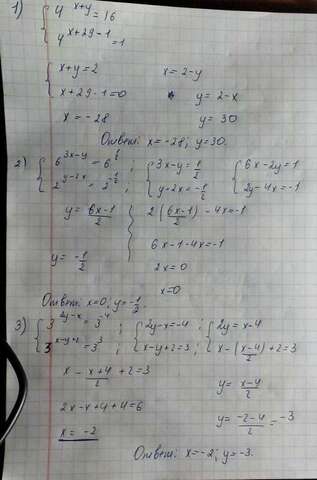 1) { 4^{x+y} = 16
4^{x+2y-1} = 1
{ x+y=2   x=2-y
x+2y-1=0   y=2-x
x=-28   y=30
Ответ: x=-28; y=30.
2) { 6^{3x-y} = 6^{1/2} ; { 3x-y=1/2   { 6x-2y=1
2^{y-2x} = 2^{-1/2} ; y-2x=-1/2   2y-4x=-1
y=(6x-1)/2   2((6x-1)/2)-4x=-1
6x-1-4x=-1
y=-1/2   2x=0
x=0
Ответ: x=0; y=-1/2.
3) { 3^{2y-x} = 3^{-4} ; { 2y-x=-4 ; { 2y=x-4
3^{x-y+2} = 3^3 ; x-y+2=3 ; x-((x-4)/2)+2=3
x-(x+4)/2+2=3   y=(x-4)/2
2x-x+4+4=6   y=(-2-4)/2=-3
x=-2
Ответ: x=-2; y=-3.